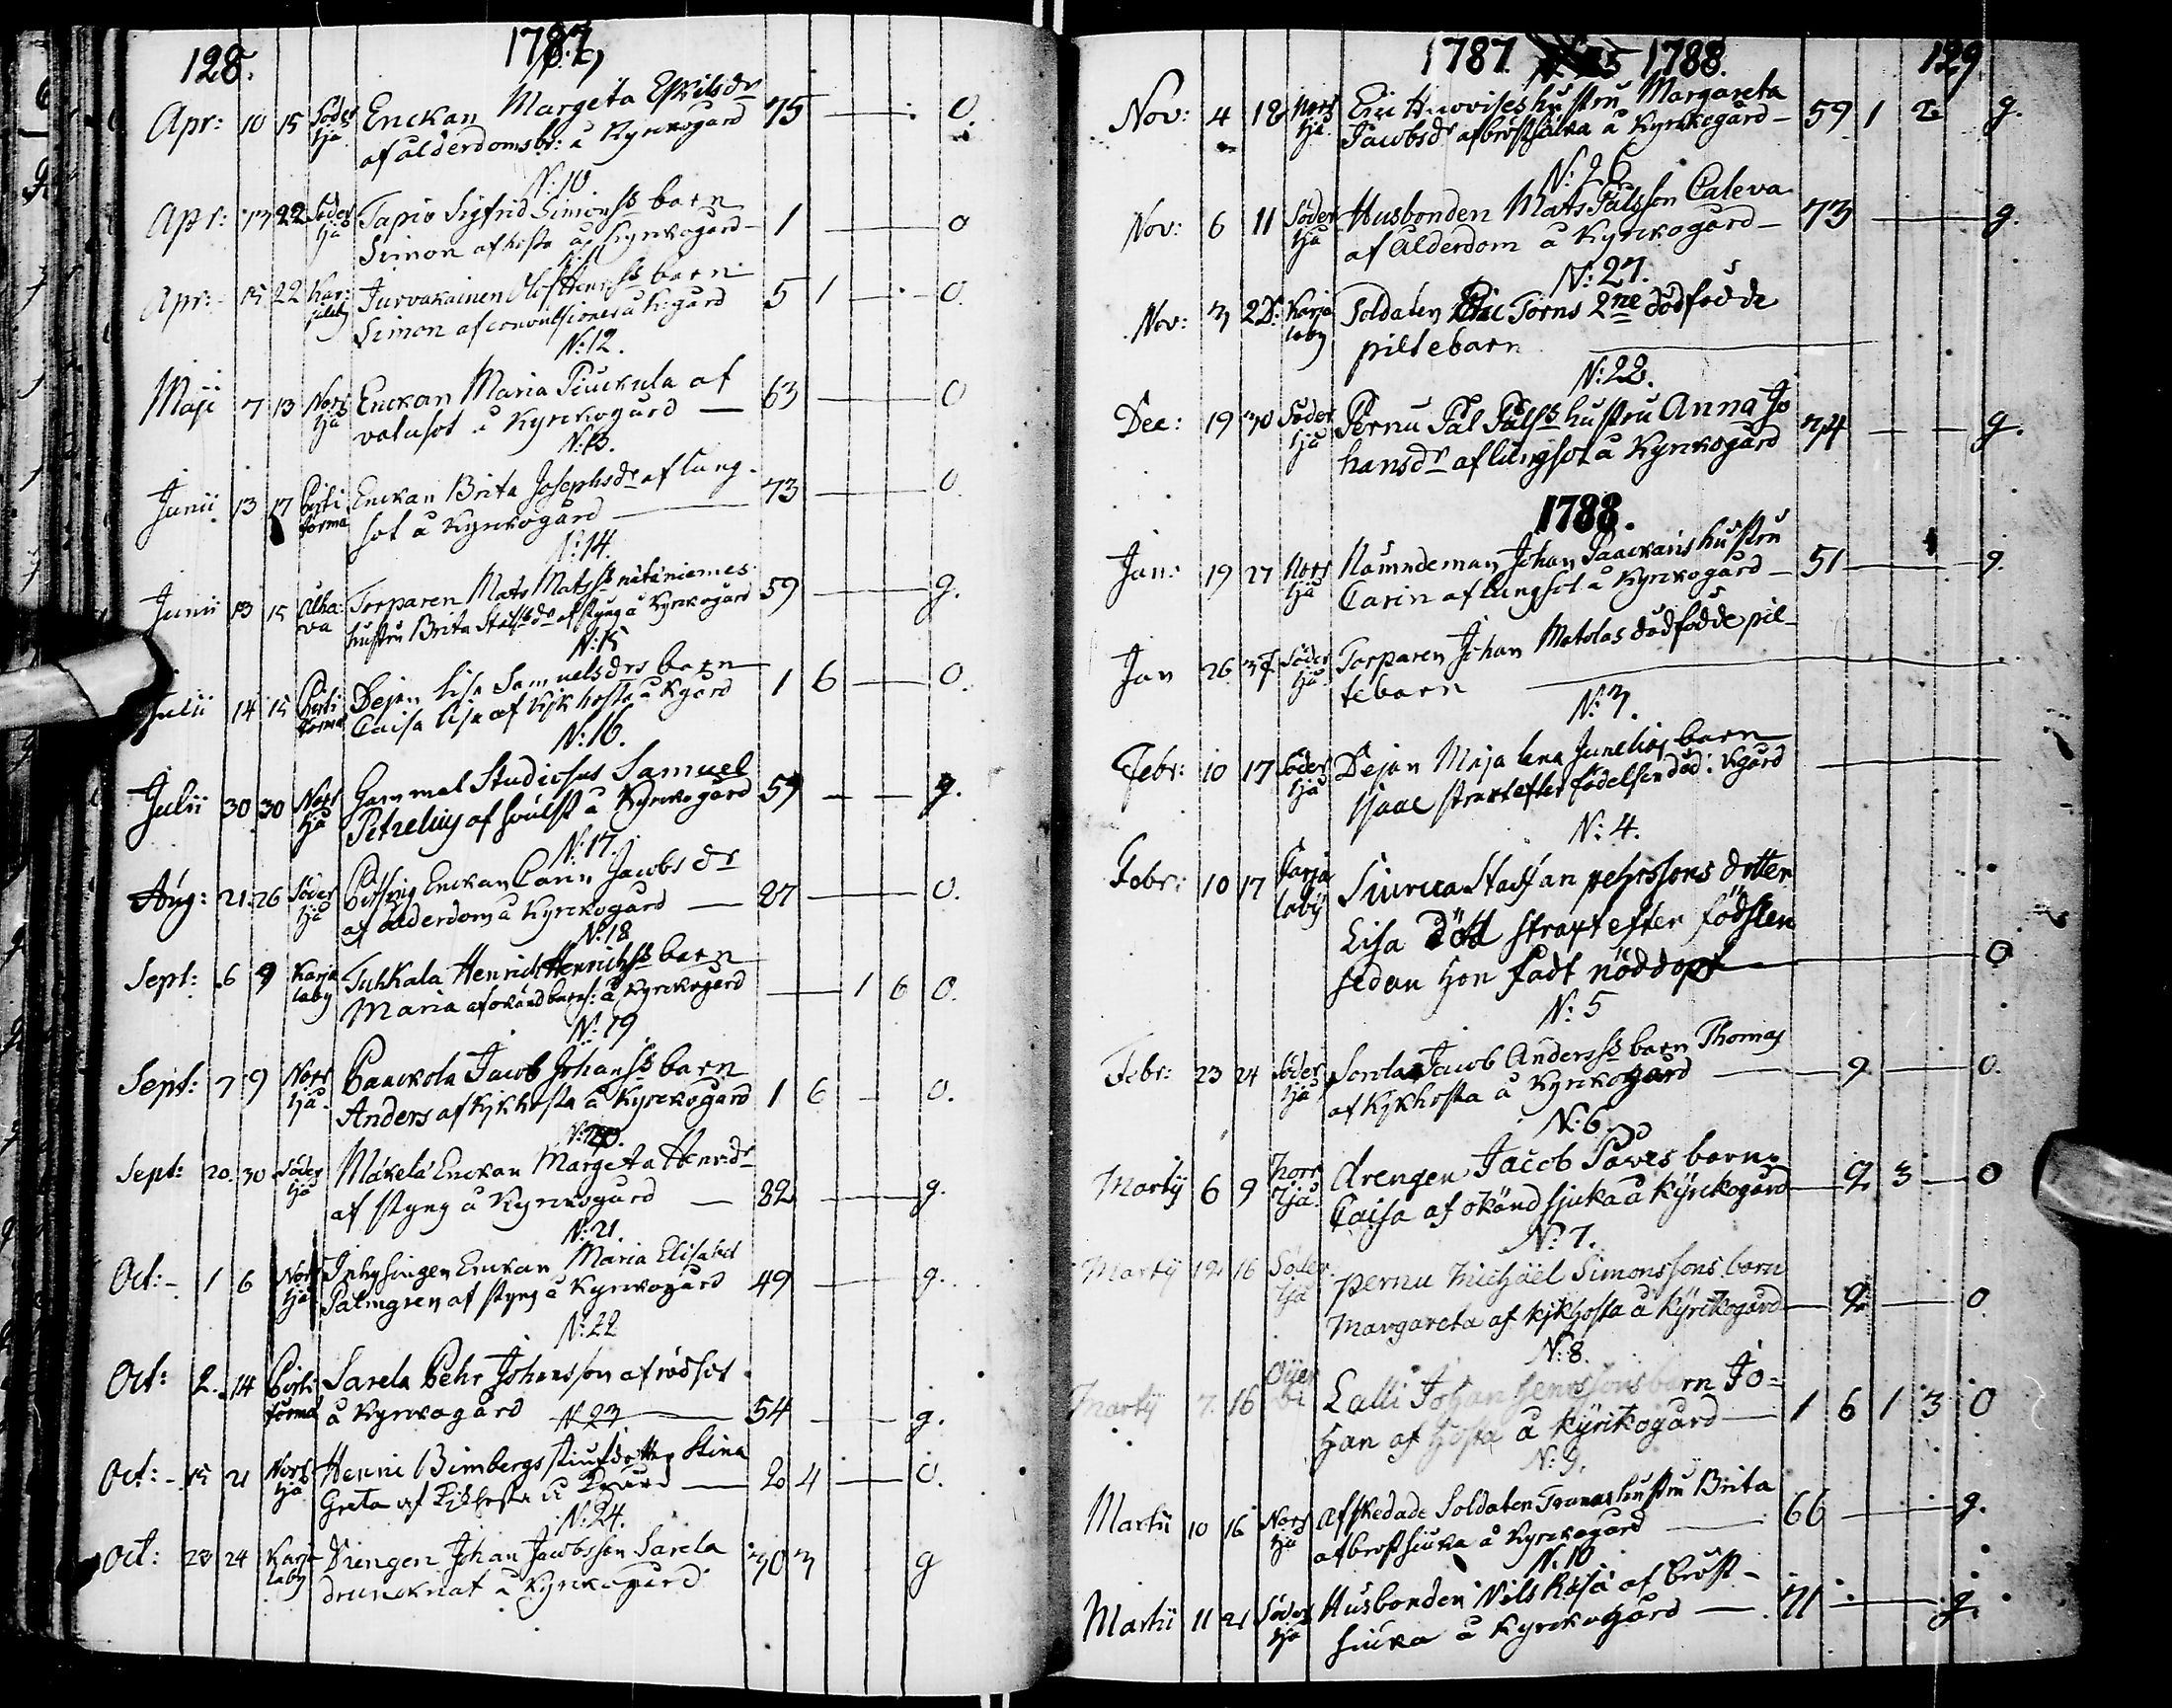 128.
1787,
Apr: 10 15 Söder tjä Enckan Margeta Eskilsdr 75 — : 0.
af ålderdomsbr: å Kyrckogård
N:10.
Apr: 17 22 Söder tjä Tapio Sigfrid Simonss barn
Simon af hosta å Kyrckogård 1 — 0
Apr: 15 22 Kar: Jurvakainen Olof Henrss barn 5 1 — 0.
Simon af convulsioner å K:gård
N:12.
Maji 7 13 Norr tjä Enckan Maria Piuckula af 63 — 0
vatusot å Kyrckogård —
N:13.
Junii 13 17 Perti torma Enckan Brita Josephsdr af lung- 73 — 0
sot å Kyrckogård —
N:14.
Junii 13 15 Alha: va Torparen Mats Matss 59 — g.
hustru Brita af styng å Kyrckogård
N:15
Julii 14 15 Perti torma Dejan Lisa Samuelsdrs barn 1 6 — 0.
Caisa Lisa af kikhosta å Kgård
N:16.
Julii 30 30 Norr tjä Gammal Studiosus Samuel 59 — — g.
Petrelius af svulst å Kyrckogård
N:17.
Aug: 21 26 Söder tjä Enckan Carin Jacobsdr 87 — 0.
af ålderdom å Kyrckogård —
N:18
Sept: 6 9 Karja laby Tuhkala Henrich Henrichss barn — 1 6 0.
Maria af okänd barns: å Kyrckogård
N:19
Sept: 7 9 Norr tjä Paackola Jacob Johanss barn 1 6 — 0.
Anders af kjkhosta å Kyrckogård
N:20.
Sept: 20. 30 Söder tjä Mäkelä Enckan Margeta Henrsdr 82 — g.
af styng å Kyrckogård —
N:21.
Oct: - 1 6 Norr tjä Inhysingen Enckan Maria Elisabet 49 — g.
Palmgren af styng å Kyrckogård
N:22
Oct: 2. 14 Perti torma Sarela Pehr Johansson af rödsot
å Kyrckogård N:23 — 54 — g.
Oct: - 15 21 Norr tjä Henric Bimbergs stiufdotter Stina 2 4 — 0.
Greta af Kikhosta å Kgård —
N:24.
Oct: 23 24 Karja laby Drengen Johan Jacobsson Sarela 30 3 g
drunknat å Kyrckogård
1787. 1788. 129
Nov: 4 18 Norr tjä Eric hustru Margareta 59 1 2 g.
Jacobsdr af bröstsiuka å Kyrckogård —
N:26
Nov: 6 11 Söder tjä Husbonden Mats Pålsson Caleva 73 — g.
af ålderdom å Kyrckogård —
N:27.
Nov: 3 2D: Karja laby Soldaten Eric Torns 2ne dödfödde
piltebarn —
N:28.
Dec: 19 30 Söder tjä Pernu Pål Pålss hustru Anna Jo 74 — — g.
hansdr af lungsot å Kyrckogård
1788.
Jan: 19 27 Norr tjä Nämndeman Johan Paavkains hustru 51 — g.
Carin af lungsot å Kyrckogård —
Jan 26 27 Söder tjä Torparen Johan Matolas dödfödde pil-
tebarn —
N:3.
Febr: 10 17 Söder tjä Dejan Maja Lena Junelias barn —
Isaac straxt efter födelsen död: Kgård
N:4.
Febr: 10 17 Karja labÿ Siurua Staffan pehrssons dotter
Lisa död straxt efter födslen
sedan hon fådt nöddopt — 0
N:5
Febr: 23 24 Söder tjä Sorola Jacob Anderss barn Thomas — 9 — 0.
af kikhosta å Kyrckogård —
N:6.
Martij 6 9 Norr Tjä Drengen Jacob Påves barn
Caisa af okänd sjuka å Kÿrckogård — 2 3 — 0
N:7.
Martij 12 16 Söder tjä pernu Michäel Simonssons barn
Margareta af kikhosta å Kÿrckogård — 2 — 0
N:8.
Martij 7. 16 Öfver bi Lalli Johan Henrssons barn Jo=
han af hosta å Kÿrckogård — 1 6 1 3 0
N:9.
Martii 10 16 Norr tjä Afskedade Soldaten Tranas hustru Brita 66 — g.
af bröstsiuka å Kyrckogård —
N:10
Martii 11 21 Söder tjä Husbonden Nils Räisä af bröst- 71 — g.
siuka å Kyrckogård —